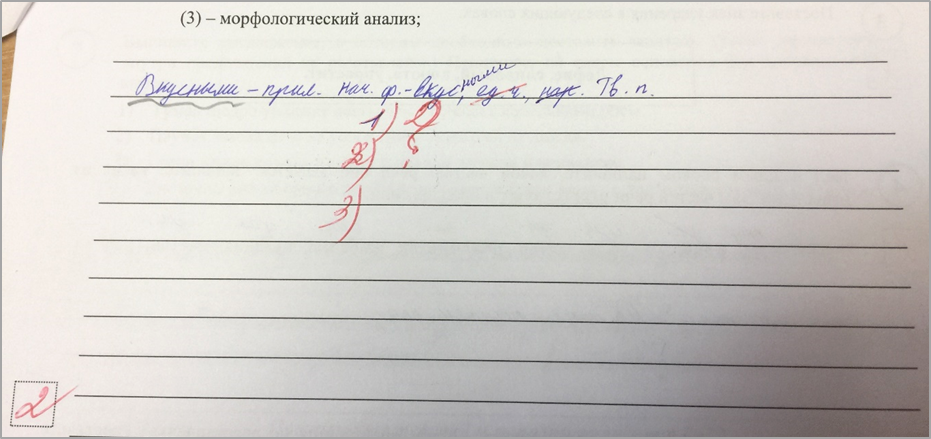 (3) – морфологический анализ;
Вкусными – прил. нач. ф. – вкус, ными ед.ч., нар. Тв. п.
1)
2)
3)
2